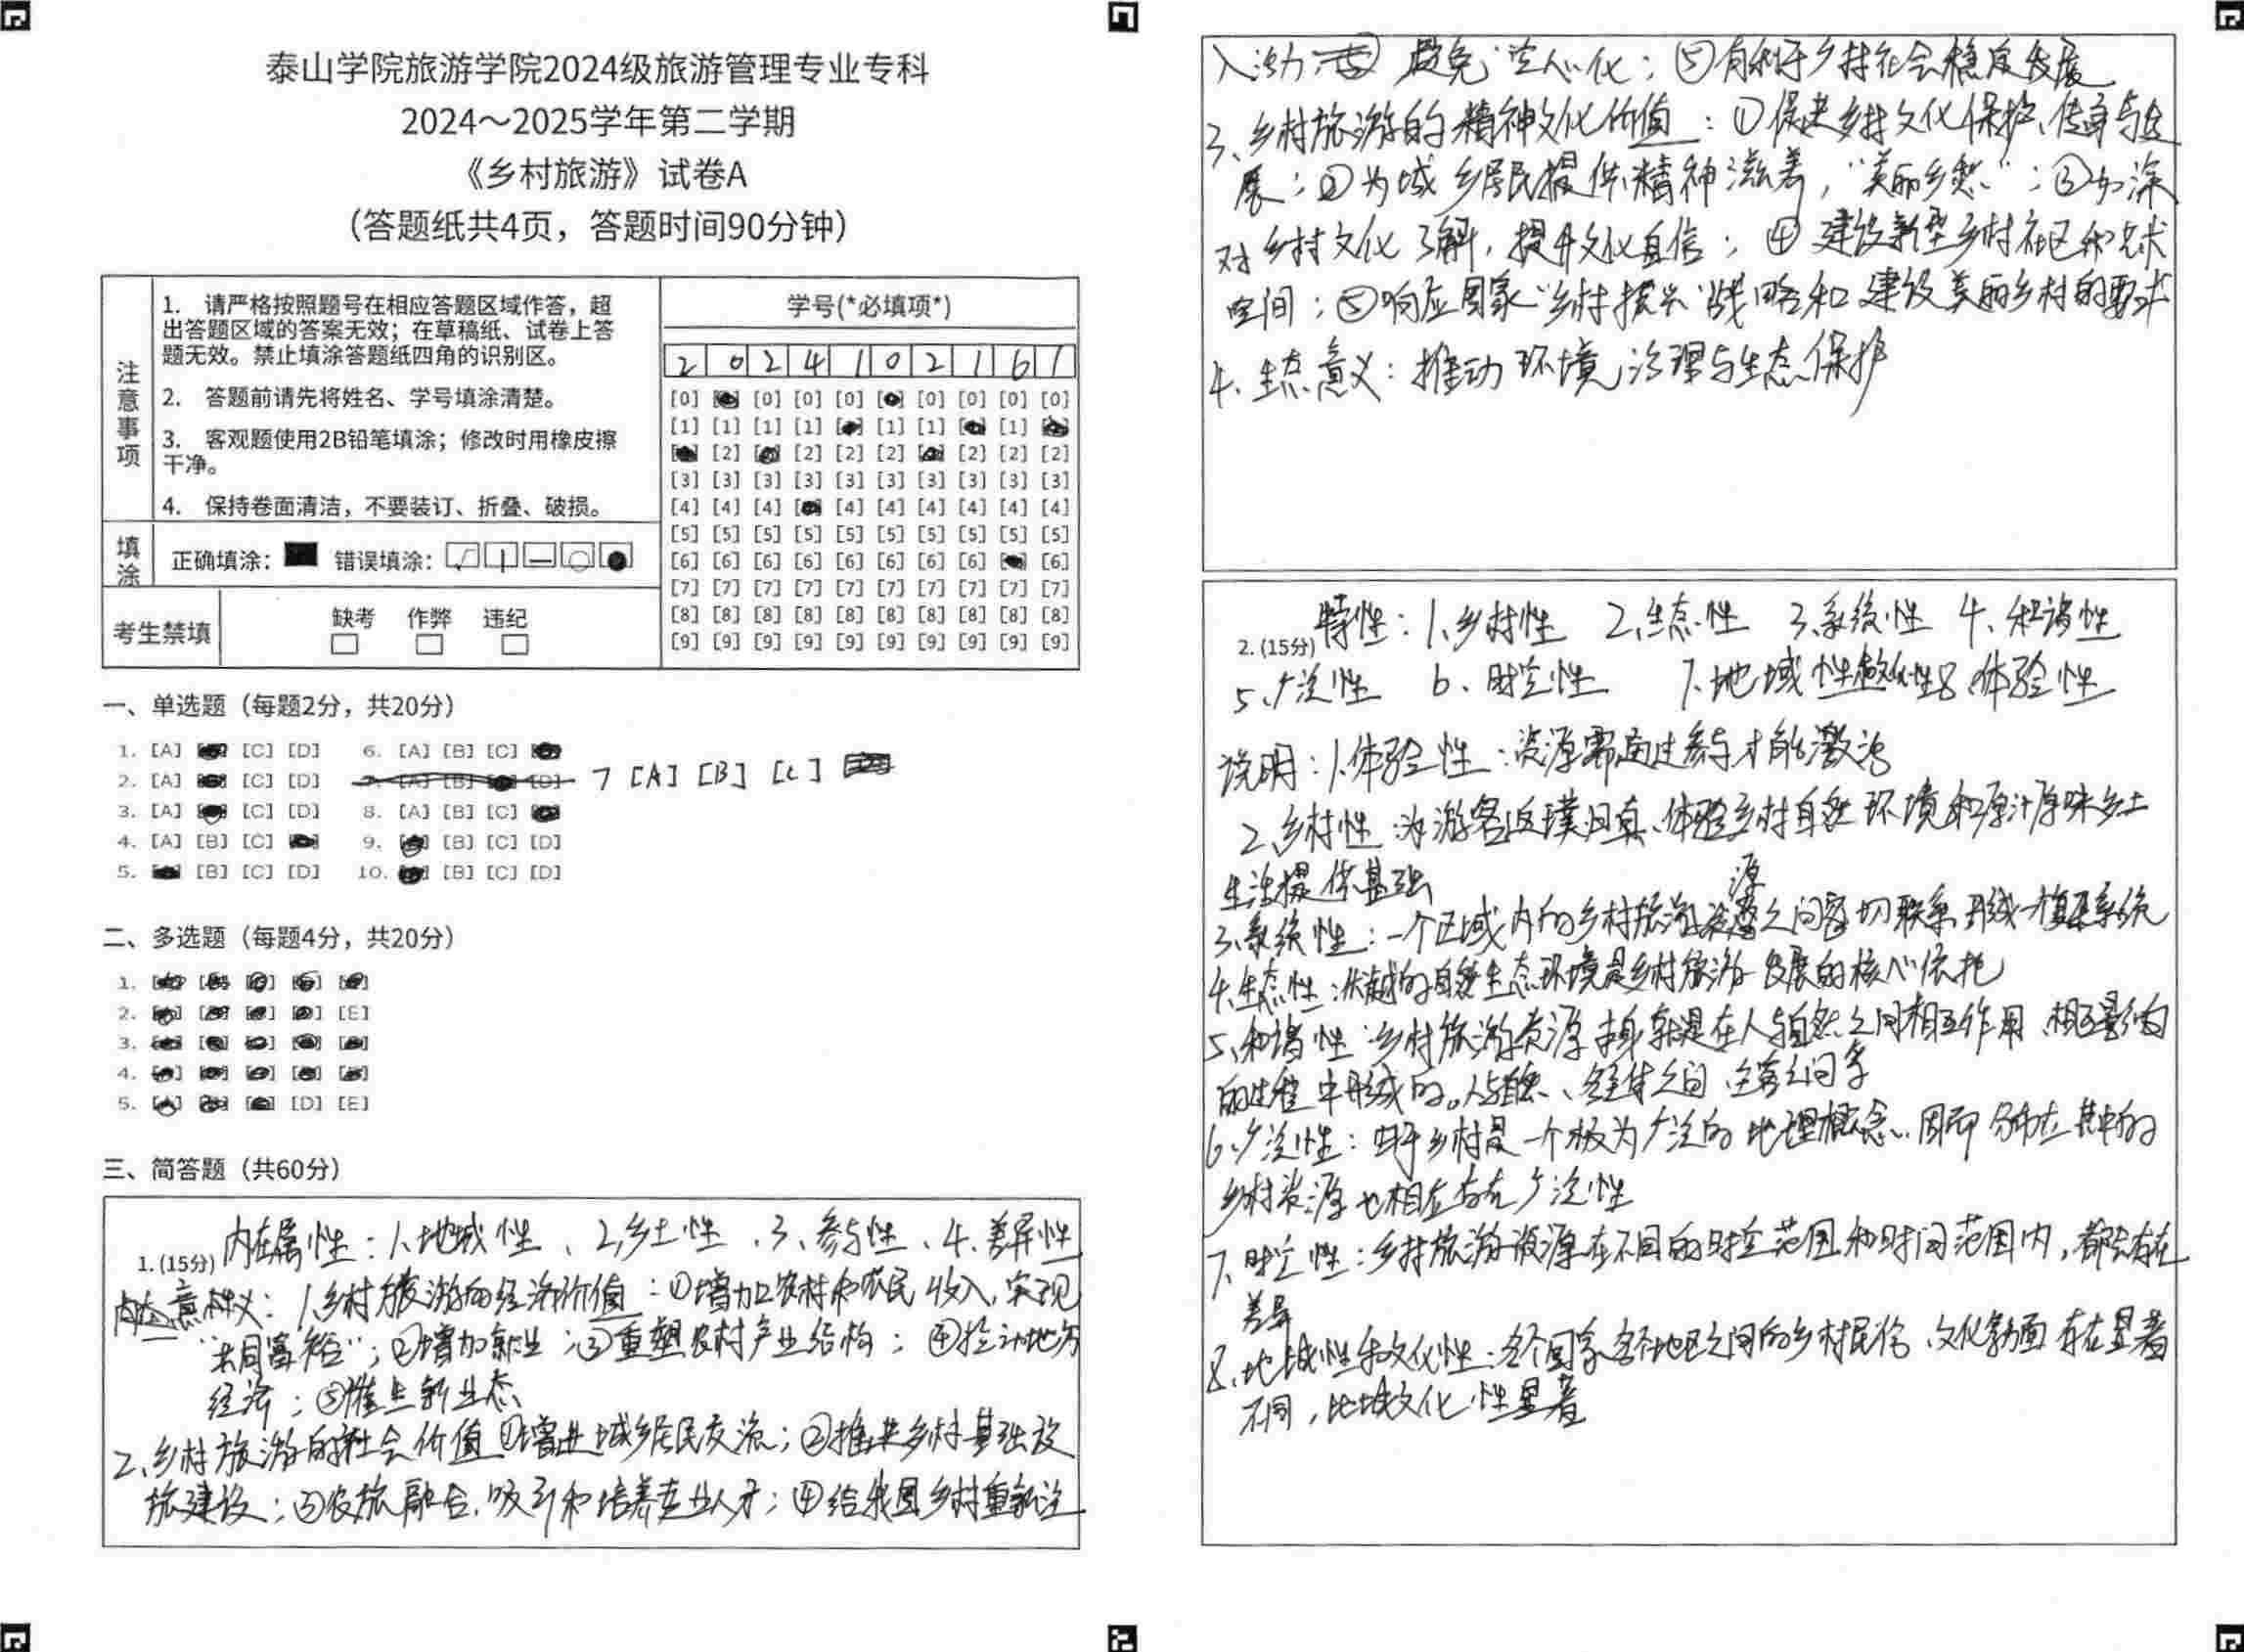 泰山学院旅游学院2024级旅游管理专业专科
2024～2025学年第二学期
《乡村旅游》试卷A
（答题纸共4页，答题时间90分钟）
注意事项
1. 请严格按照题号在相应答题区域作答，超
出答题区域的答案无效；在草稿纸、试卷上答
题无效。禁止填涂答题纸四角的识别区。
2. 答题前请先将姓名、学号填涂清楚。
3. 客观题使用2B铅笔填涂；修改时用橡皮擦
干净。
4. 保持卷面清洁，不要装订、折叠、破损。
填涂
正确填涂： 错误填涂：
考生禁填
缺考 作弊 违纪
学号(*必填项*)
2 0 2 4 1 0 2 1 6 1
[0] [0] [0] [0] [0] [0] [0] [0]
[1] [1] [1] [1] [1] [1] [1]
[2] [2] [2] [2] [2] [2] [2]
[3] [3] [3] [3] [3] [3] [3] [3] [3] [3]
[4] [4] [4] [4] [4] [4] [4] [4] [4]
[5] [5] [5] [5] [5] [5] [5] [5] [5] [5]
[6] [6] [6] [6] [6] [6] [6] [6] [6]
[7] [7] [7] [7] [7] [7] [7] [7] [7] [7]
[8] [8] [8] [8] [8] [8] [8] [8] [8] [8]
[9] [9] [9] [9] [9] [9] [9] [9] [9] [9]
一、单选题（每题2分，共20分）
1. [A] [C] [D] 6. [A] [B] [C]
2. [A] [C] [D] 7 [A] [B] [C]
3. [A] [C] [D] 8. [A] [B] [C]
4. [A] [B] [C] 9. [B] [C] [D]
5. [B] [C] [D] 10. [B] [C] [D]
二、多选题（每题4分，共20分）
1.
2. [E]
3.
4.
5. [D] [E]
三、简答题（共60分）
1. (15分) 内在属性：1、地域性、2、乡土性、3、参与性、4、差异性
意义：1、乡村旅游的经济价值：①增加农村和农民收入，实现
“共同富裕”；②增加就业；③重塑农村产业结构；④拉动地方
经济；⑤催生新业态
2、乡村旅游的社会价值①增进城乡居民交流；②推进乡村基础设
施建设；③农旅融合，吸引和培养专业人才；④给我国乡村重新注
入活力，避免“空心”化；⑤有利于乡村社会稳定发展
3、乡村旅游的精神文化价值：①促进乡村文化保护、传承与发
展；②为城乡居民提供精神滋养，“美丽乡愁”；③加深
对乡村文化了解，提升文化自信；④建设新型乡村社区和艺术
空间；⑤响应国家“乡村振兴”战略和建设美丽乡村的要求
4、生态意义：推动环境治理与生态保护
2. (15分) 特性：1、乡村性 2、生态性 3、系统性 4、和谐性
5、广泛性 6、时空性 7、地域性 8、体验性
说明：1、体验性：资源需通过参与才能激活
2、乡村性：为游客返璞归真、体验乡村自然环境和原汁原味乡土
生活提供基础
3、系统性：一个区域内的乡村旅游资源之间密切联系形成一个复杂系统
4、生态性：优越的自然生态环境是乡村旅游发展的核心依托
5、和谐性：乡村旅游资源本身就是在人与自然之间相互作用、相互影响
的过程中形成的。人与自然、主客之间等
6、广泛性：由于乡村是一个极为广泛的地理概念，因而分布在其中的
乡村资源也相应存在广泛性
7、时空性：乡村旅游资源在不同的时空范围和时间范围内，都会存在
差异
8、地域性和文化性：各个国家各个地区之间的乡村民俗、文化方面存在显著
不同，地域文化性显著